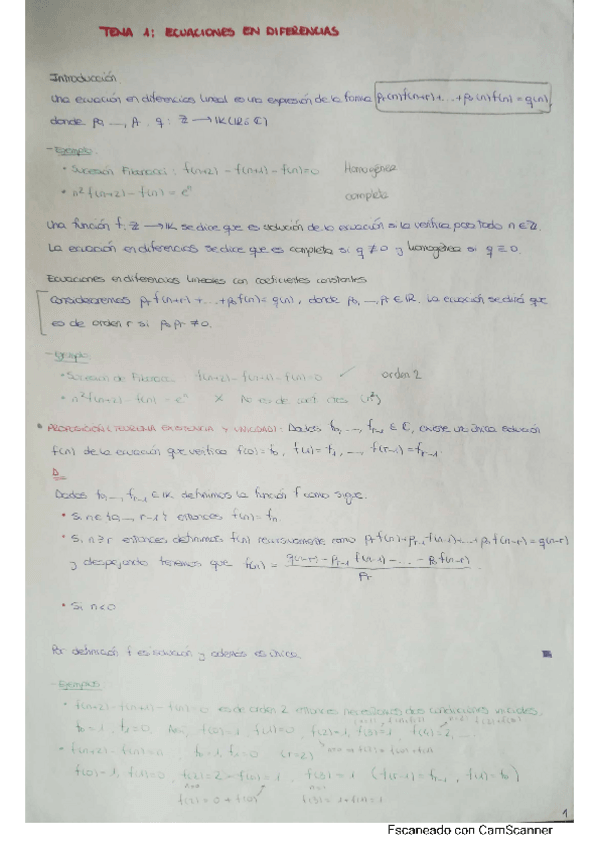 TEMA 1: ECUACIONES EN DIFERENCIAS
Introducción
Una ecuación en diferencias lineal es una expresión de la forma pr(n)f(n+r)+...+p0(n)f(n)=q(n),
donde p0, ..., pr, q: ℤ → K (ℝ o ℂ)
- Ejemplo:
• Sucesión Fibonacci: f(n+2) - f(n+1) - f(n) = 0 Homogénea
• n² f(n+2) - f(n) = eⁿ completa
Una función f: ℤ → K se dice que es solución de la ecuación si la verifica para todo n ∈ ℤ.
La ecuación en diferencias se dice que es completa si q ≠ 0 y homogénea si q ≡ 0.
Ecuaciones en diferencias lineales con coeficientes constantes
Consideraremos pr f(n+r) + ... + p0 f(n) = q(n), donde p0, ..., pr ∈ ℝ. La ecuación se dirá que
es de orden r si p0 pr ≠ 0.
- Ejemplo:
• Sucesión de Fibonacci f(n+2) - f(n+1) - f(n) = 0 ✓ orden 2
• n² f(n+2) - f(n) = eⁿ X No es de coef. ctes (n²)
• PROPOSICIÓN (TEOREMA EXISTENCIA Y UNICIDAD): Dados f0, ..., fr-1 ∈ ℂ, existe una única solución
f(n) de la ecuación que verifica f(0) = f0, f(1) = f1, ..., f(r-1) = fr-1.
D
Dados f0, ..., fr-1 ∈ K definimos la función f como sigue.
• Si n ∈ {0, ..., r-1} entonces f(n) = fn
• Si n ≥ r entonces definimos f(n) recursivamente como pr f(n) + pr-1 f(n-1) + ... + p0 f(n-r) = q(n-r)
y despejando tenemos que f(n) = q(n-r) - pr-1 f(n-1) - ... - p0 f(n-r) / pr
• Si n < 0
Por definición f es solución y además es única.
- Ejemplo:
• f(n+2) - f(n+1) - f(n) = 0 es de orden 2 entonces necesitamos dos condiciones iniciales.
f0 = 1, f1 = 0. Así, f(0) = 1, f(1) = 0, f(2) = 1, f(3) = 1, f(4) = 2, ...
f0 = 1, f1 = 0 (r=2)
f(0) = 1, f(1) = 0, f(3) = 1 (f(r-1) = fr-1
f(2) = 0 + f(0) f(3) = 1 +
1
Escaneado con CamScanner